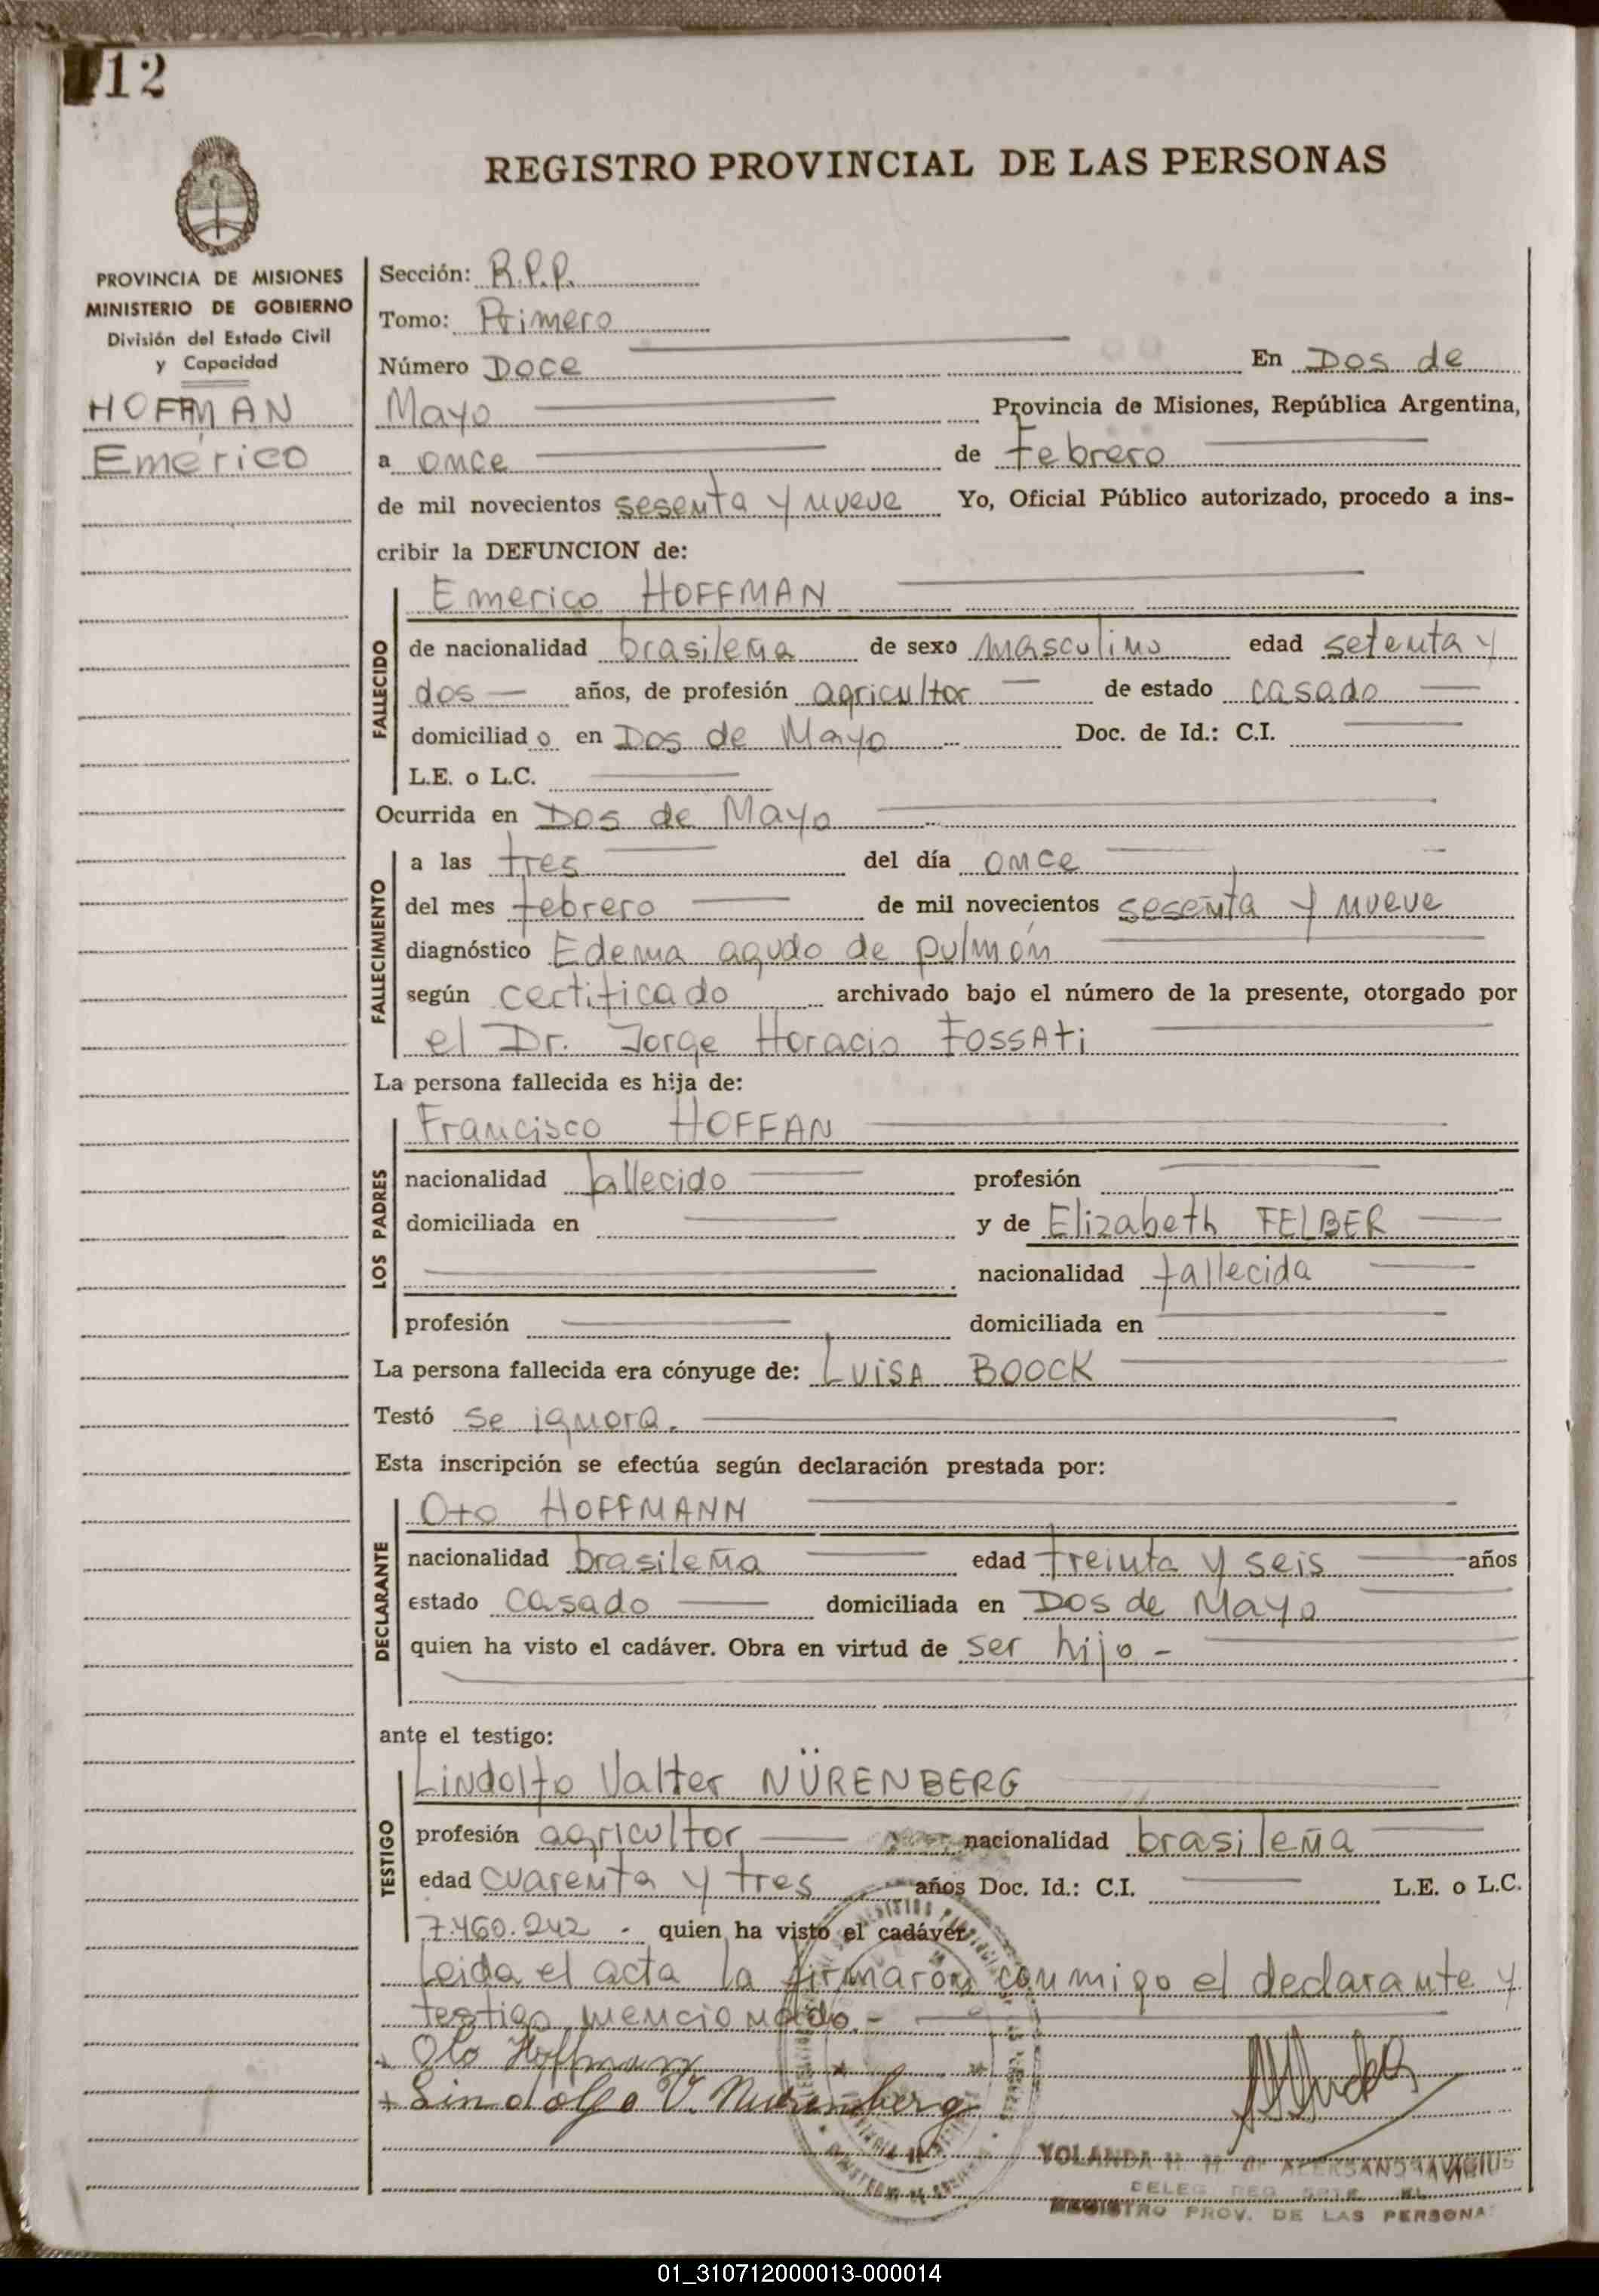 12
REGISTRO PROVINCIAL DE LAS PERSONAS
PROVINCIA DE MISIONES
MINISTERIO DE GOBIERNO
División del Estado Civil
y Capacidad
HOFFMAN
Emérico
Sección: R.P.P.
Tomo: Primero
Número Doce En Dos de
Mayo Provincia de Misiones, República Argentina,
a once de Febrero
de mil novecientos sesenta y nueve Yo, Oficial Público autorizado, procedo a ins-
cribir la DEFUNCION de:
FALLECIDO
Emerico HOFFMAN
de nacionalidad brasileña de sexo masculino edad setenta y
dos años, de profesión agricultor de estado casado
domiciliado en Dos de Mayo Doc. de Id.: C.I.
L.E. o L.C.
Ocurrida en Dos de Mayo
FALLECIMIENTO
a las tres del día once
del mes febrero de mil novecientos sesenta y nueve
diagnóstico Edema agudo de pulmón
según certificado archivado bajo el número de la presente, otorgado por
el Dr. Jorge Horacio FOSSATi
La persona fallecida es hija de:
LOS PADRES
Francisco HOFFAN
nacionalidad fallecido profesión
domiciliada en y de Elizabeth FELBER
nacionalidad fallecida
profesión domiciliada en
La persona fallecida era cónyuge de: LUISA BOOCK
Testó se ignora.
Esta inscripción se efectúa según declaración prestada por:
DECLARANTE
Oto HOFFMANN
nacionalidad brasileña edad treinta y seis años
estado casado domiciliada en Dos de Mayo
quien ha visto el cadáver. Obra en virtud de ser hijo -
ante el testigo:
TESTIGO
Lindolfo Valter NÜRENBERG
profesión agricultor nacionalidad brasileña
edad cuarenta y tres años Doc. Id.: C.I. L.E. o L.C.
7.460.242 - quien ha visto el cadáver
Leida el acta la firmaron conmigo el declarante y
testigo mencionado.-
Oto Hoffmann
+ Lindolfo V. Nurenberg
YOLANDA
REGISTRO PROV. DE LAS PERSONAS
01_310712000013-000014